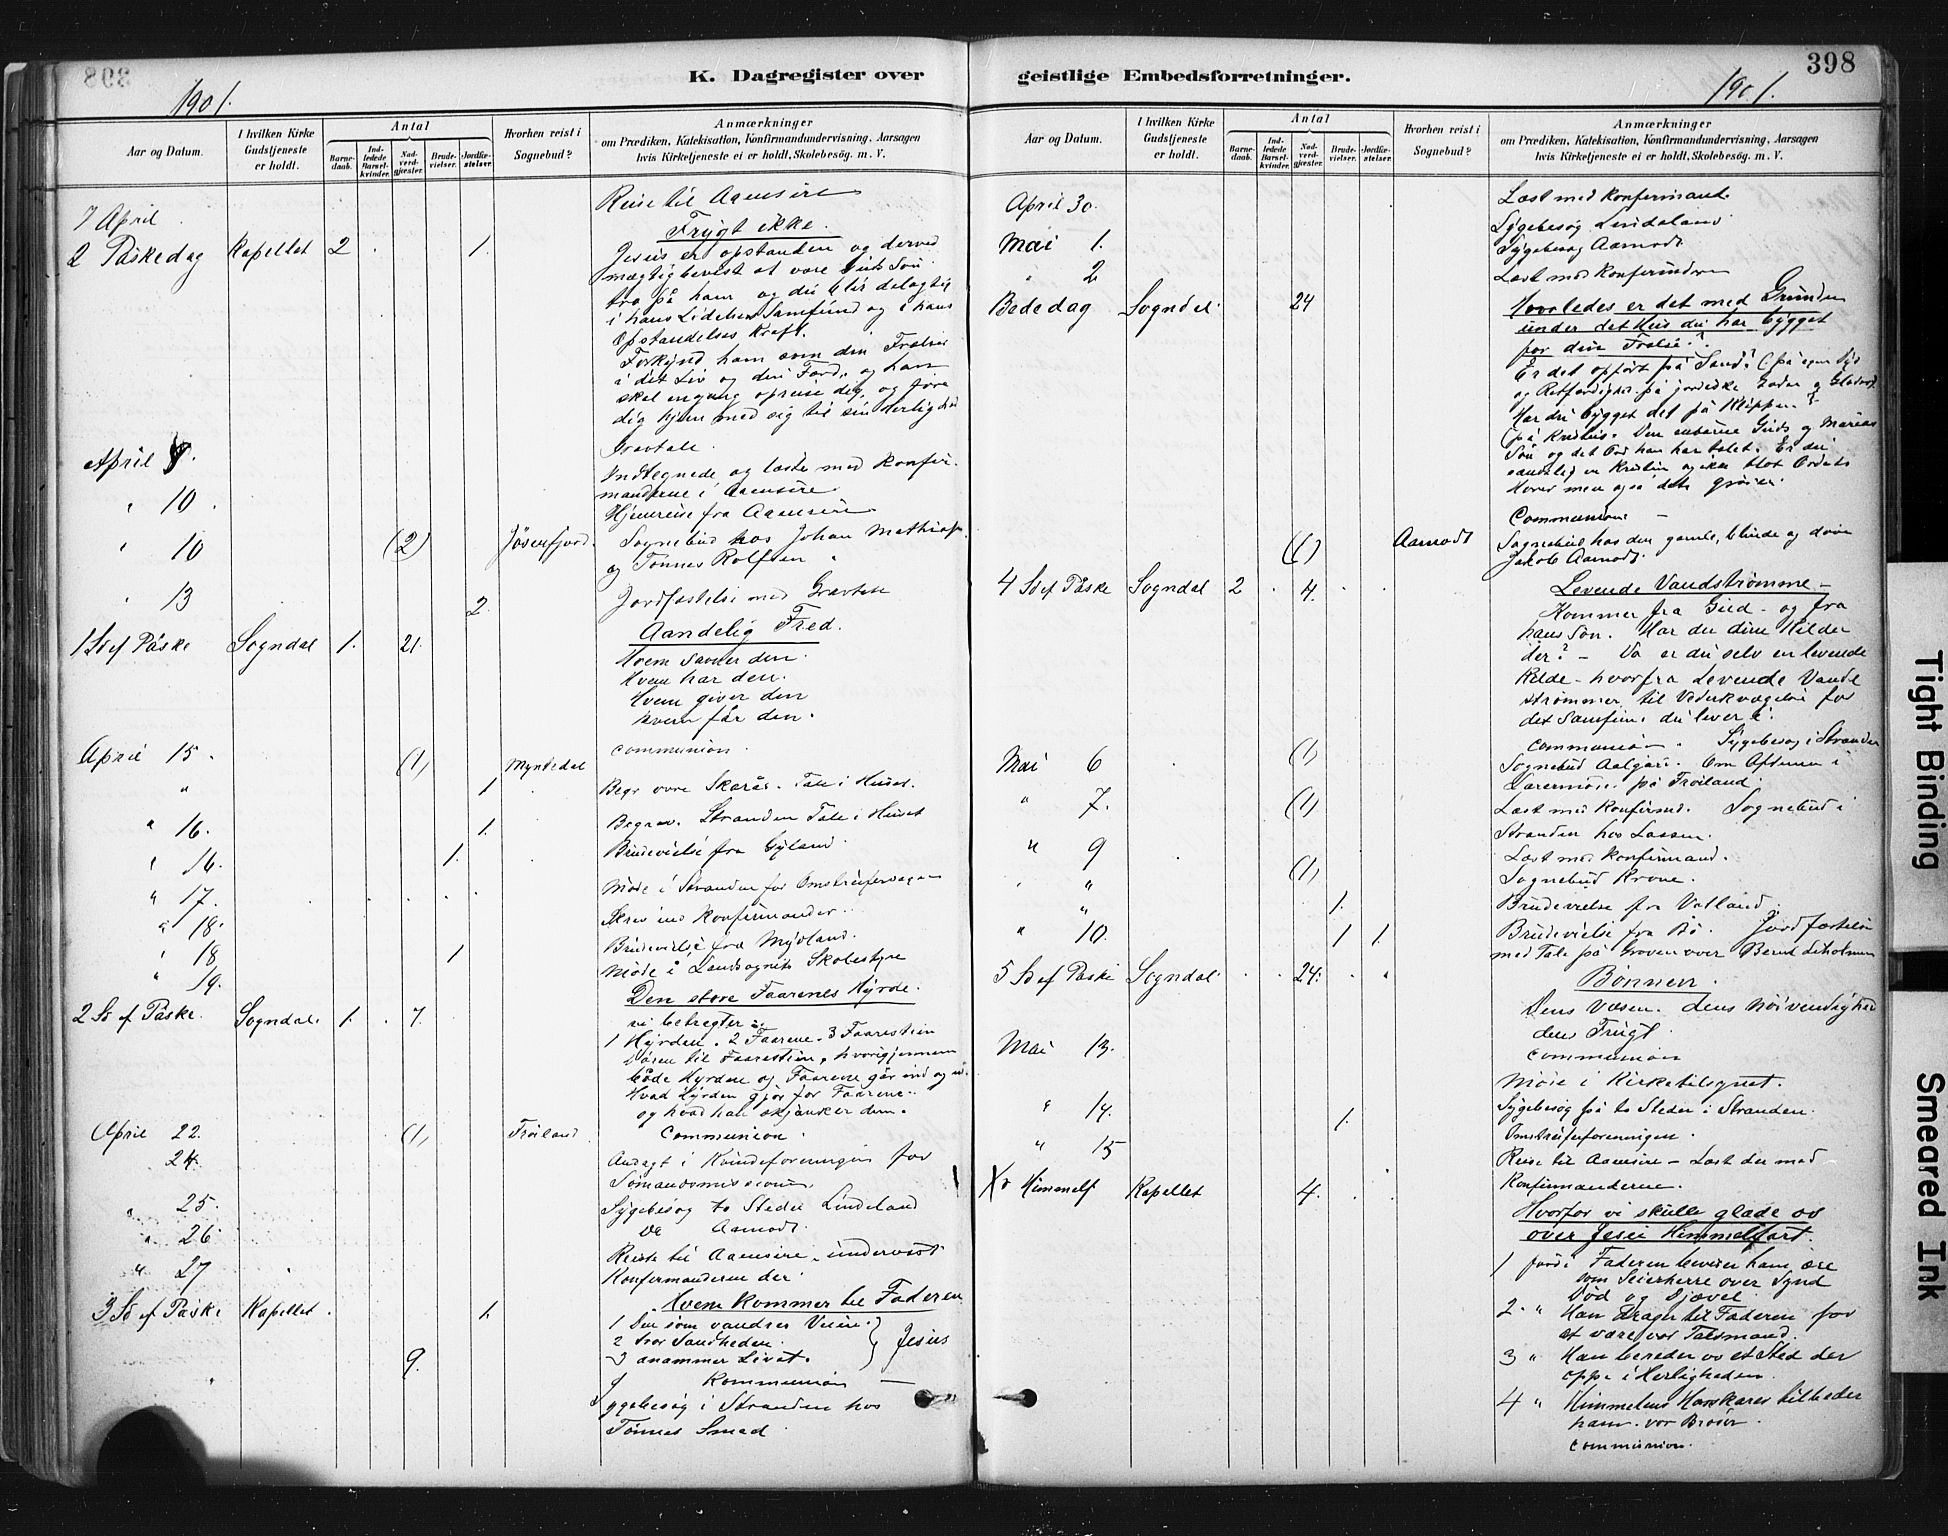 398
K. Dagregister over
1901.
Aar og Datum.
I hvilken Kirke Gudstjeneste er holdt.
Antal
Barnedaab.
Indledede Barselkvinder.
Nadverdgjæster.
Brudevielser.
Jordfæstelser.
Hvorhen reist i Sognebud?
Anmærkninger
om Prædiken, Katekisation, Konfirmandundervisning, Aarsagen
hvis Kirketjeneste ei er holdt, Skolebesøg. m. V.
Reise til Aamsire
7 April
Frygt ikke.
2 Påskedag Kapellet 2 1.
Jesus er opstanden og derved
mægtig bevist at være Guds Søn
tro på ham og du blir delagtig
i hans Lidelses Samfund og i hans
Opstandelses Kraft.
Forkynd ham som din Frelser
i dit Liv og din Færd, og han
skal engang opreise dig, og føre
dig hjem med sig til sin Herlighed
Gravtale.
April
Indtegnede og læste med Konfir-
mandene i Aamsire
" 10.
Hjemreise fra Aamsire
" 10 (2) Jøssenfjord.
Sognebud hos Johan Mathias
og Tønnes Rolfsen
" 13 2.
Jordfæstelse med Gravtale
Aandelig Fred.
1 Sø ef Påske Sogndal 1. 21.
Hvem savner den.
Hvem har den.
Hvem giver den
hvem får den.
Communion.
April 15. (1) Myndedal
" 1
Begr. øvre Skarås. Tale i Huset.
" 16. 1.
Begrav. Stranden Tale i Huset
" 16. 1.
Brudevielse fra Gyland.
" 17.
Møde i Stranden for Omstreifersagen
" 18.
Skrev ind Konfirmander.
" 18 1
Brudevielse fra Mydland.
" 19.
Møde i Landsognets Skolestyre
Den store Faarenes Hyrde.
2 Sø ef Påske. Sogndal. 1. 7.
vi betragter:
1 Hyrden. 2 Faarene. 3 Faarestien
Døren til Faarestien, hvorigjennem
både Hyrden og Faarene går ind og ud.
Hvad Hyrden gjør for Faarene.
og hvad han skjænker dem.
April 22. (1) Frøiland.
Communion.
24.
Andagt i Kvindeforeningen for
Sømandsmissionen.
" 25.
Sygebesøg to Steder Lindeland
" 26
Do Aamodt.
" 27
Reiste til Aamsire, underviste
Konfirmanderne der.
3 Sø ef Påske Kapellet. 1.
Hvem kommer til Faderen
1 Den som vandrer Veien.
2 tror Sandheden.
3 anammer Livet.
} Jesus
9.
Kommunion
Sygebesøg i Stranden hos
Tønnes Smed
geistlige Embedsforretninger.
398
1901.
Aar og Datum.
I hvilken Kirke Gudstjeneste er holdt.
Antal
Barnedaab.
Indledede Barselkvinder.
Nadverdgjæster.
Brudevielser.
Jordfæstelser.
Hvorhen reist i Sognebud?
Anmærkninger
om Prædiken, Katekisation, Konfirmandundervisning, Aarsagen
hvis Kirketjeneste ei er holdt, Skolebesøg. m. V.
April 30.
Læst med Konfirmand.
Sygebesøg Lindeland
Mai 1.
Sygebesøg Aamodt
" 2
Læst med Konfirmdne
Bededag Sogndal. 24
Hvorledes er det med Grunden
under det Hus du har bygget
for din Frelse?
Er det opført på Sand? (på egen Dyd
og Retfærdighed på jordiske Goder og Glæder).
Har du bygget det på Klippen?
(på Kristus. Den enbårne Guds og Marias
Søn og det Ord han har talet. Er du
sandelig en Kristen og ikke blot Ordets
Hører men også dets Gjører.
Communion
(1) Aamodt
Sognebud hos den gamle, blinde og døve
Jakob Aamodt.
4 Sø ef Påske Sogndal 2 4.
Levende Vandstrømme
Kommer fra Gud og fra
hans Søn. Har du dine Kilder
der? Da er du selv en levende
Kilde - hvorfra levende Vande
strømmer til Vederkvægelse for
det Samfund du lever i.
Communion. Sygebesøg i Stranden
Mai 6 (1)
Sognebud Aalgård. Om Aftenen i
på Frøiland.
" 7. (1)
Læst med Konfirmd. Sognebud i
Stranden hos Lassen.
" 9
Læst med Konfirmand.
" (1)
Sognebud Krone.
" 1.
Brudevielse fra Valland.
" 10. 1 1.
Brudevielse fra Bø. Jordfæstelse
med Tale på Graven over Bernt Liholmen
5 Sø ef Påske Sogndal. 24.
Bønnen.
Dens Væsen. dens Nødvendighed
dens Frugt.
Communion
Mai 13.
Møde i Kirketilsynet.
" 14. 1.
Sygebesøg på to Steder i Stranden.
Omstreiferforeningen.
" 15
Reise til Aamsire - Læst der med
Konfirmanderne.
Kr Himmelf Kapellet 4.
Hvorfor vi skulle glæde os
over Jesu Himmelfart.
1 fordi Faderen beviser ham ære
som Seierherre over Synd
Død og Djævel.
2. " Han Drager til Faderen for
at være vor Talsmand.
3 " Han bereder os et Sted der
oppe i Herligheden.
4 " Himmelens Hærskarer tilbeder
ham. vor Broder.
Communion.
Tight Binding
Smeared Ink